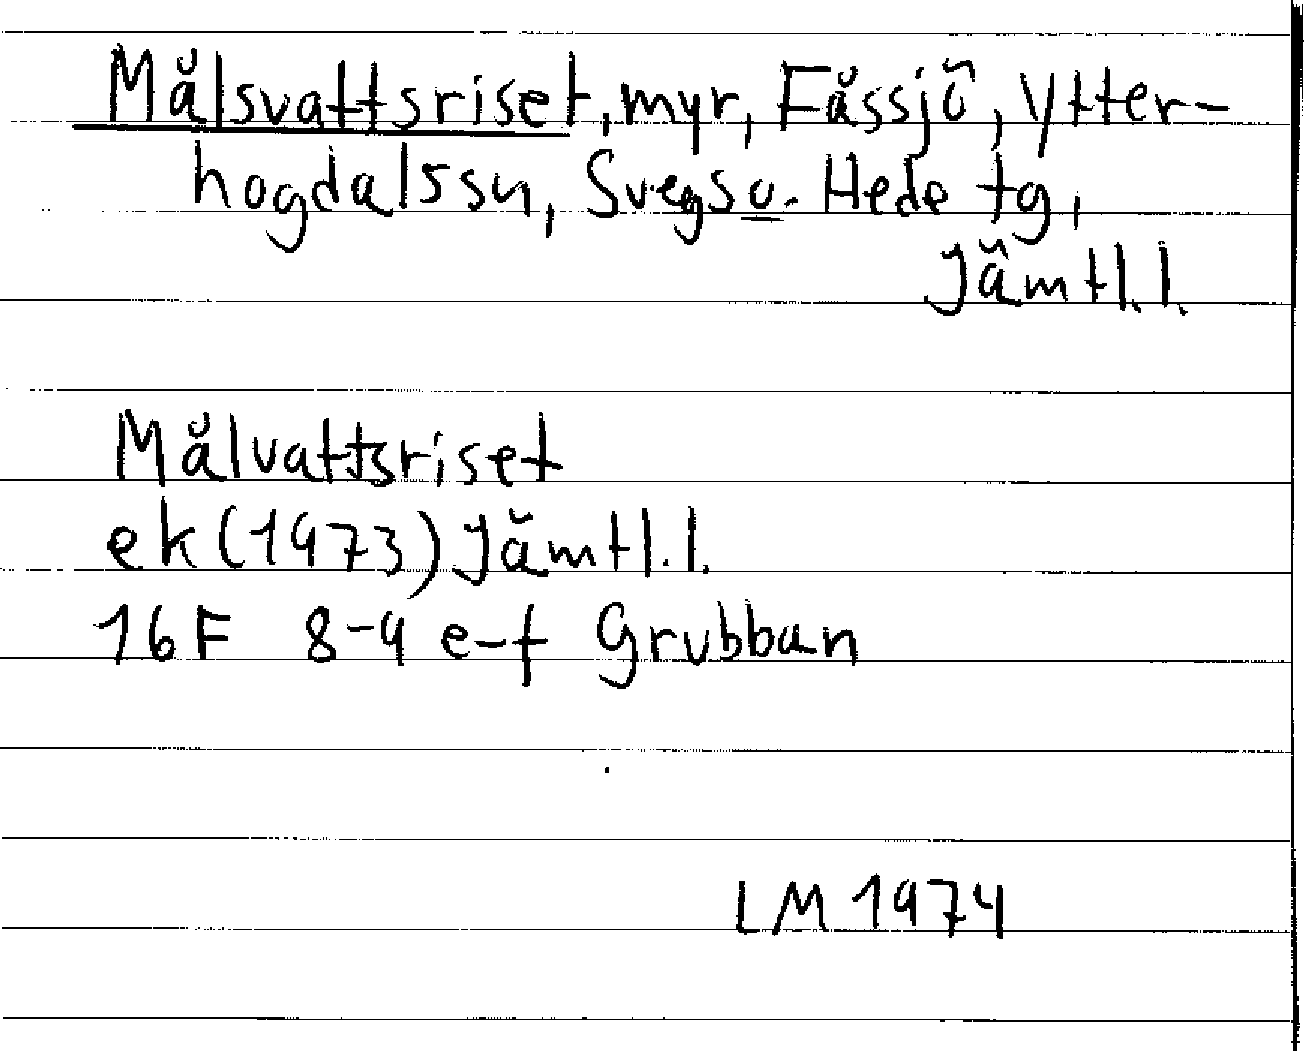 Målsvattsriset, myr, Fåssjö, Ytter-
hogdalssn, Svegs o. Hede tg,
Jämtl. l.
Målvattsriset
ek (1973) Jämtl. l.
16F 8-9 e-f Grubban
LM 1974